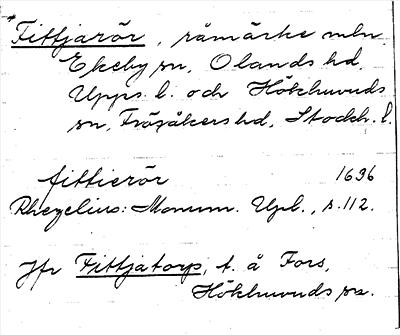 *Fittjarör, råmärke mln
Ekeby sn, Olands hd,
Upps. l. och Hökhuvuds
sn, Frösåkers hd, Stockh. l.
fittierör 1636
Rhezelius: Monum. Upl., s. 112.
Jfr Fittjatorp, t. å Fors,
Hökhuvuds sn.